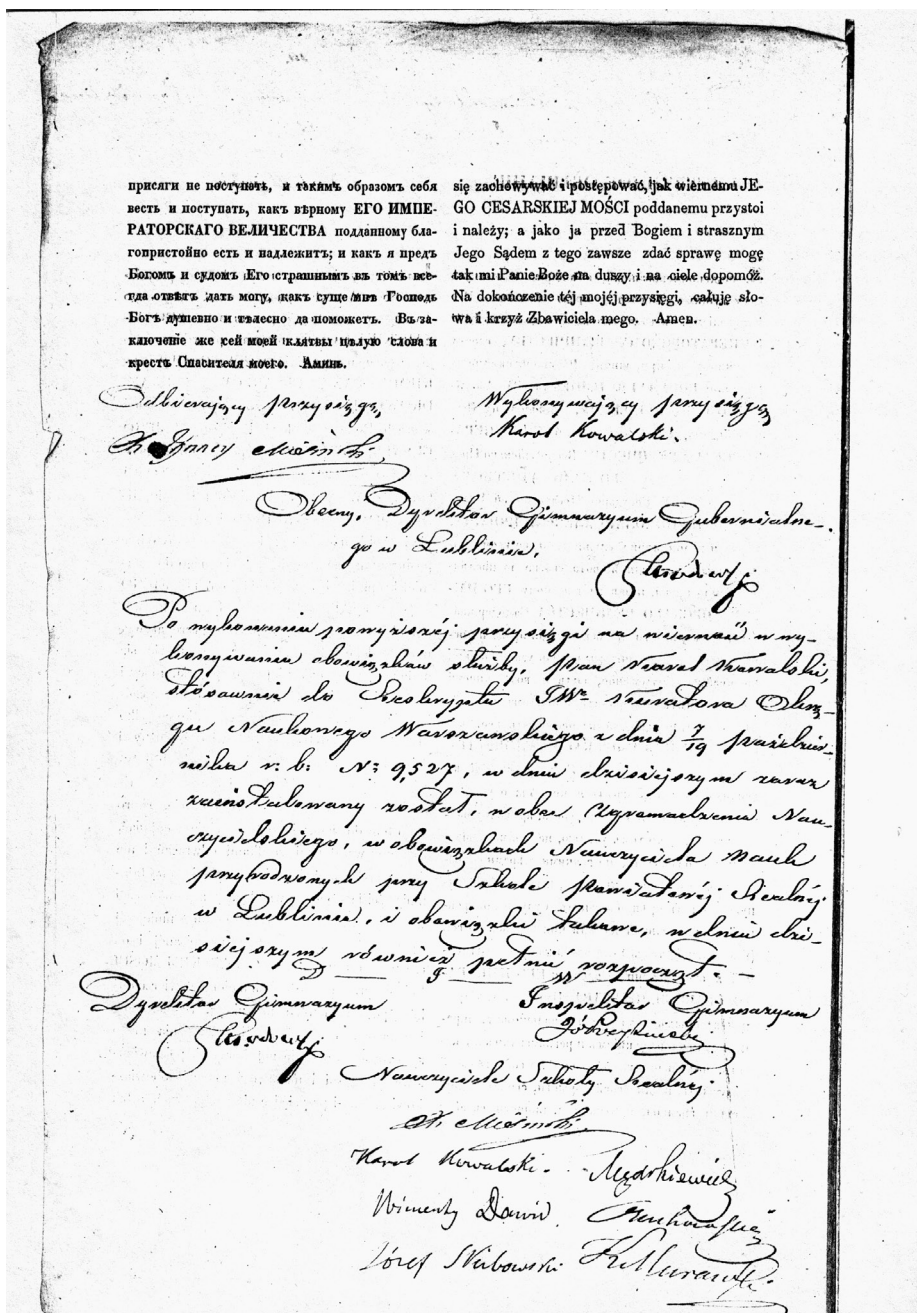 присяги не поступать, и такимъ образомъ себя
весть и поступать, какъ вѣрному ЕГО ИМПЕ-
РАТОРСКАГО ВЕЛИЧЕСТВА подданному бла-
гопристойно есть и надлежитъ; и какъ я предъ
Богомъ и судомъ Его страшнымъ въ томъ все-
гда отвѣтъ дать могу, какъ суще мнѣ Господь
Богъ душевно и тѣлесно да поможетъ. Въ за-
ключеніе же сей моей клятвы цѣлую слова и
крестъ Спасителя моего. Аминь.
się zachowywać i postępować, jak wiernemu JE-
GO CESARSKIEJ MOŚCI poddanemu przystoi
i należy; a jako ja przed Bogiem i strasznym
Jego Sądem z tego zawsze zdać sprawę mogę
tak mi Panie Boże na duszy i na ciele dopomóż.
Na dokończenie téj mojéj przysięgi, całuję sło-
wa i krzyż Zbawiciela mego. Amen.
Odbierający przysięgę,
Misiński
Wykonywający przysięgę
Karol Kowalski.
Obecny, Dyrektor Gimnazyum Gubernialne-
go w Lublinie.
Po wykonaniu powyższéj przysięgi na wierność w wy-
konywaniu obowiązków służby, pan Karol Kowalski,
stósownie do Reskryptu JWº Kuratora Okrę-
gu Naukowego Warszawskiego z dnia 7/19 paździer-
nika r: b: N: 9,527, w dniu dzisiejszym zaraz
zainstalowany został, wobec Zgromadzenia Nau-
czycielskiego, w obowiązkach Nauczyciela Nauk
przyrodzonych przy Szkole powiatowéj Realnéj
w Lublinie, i obowiązki takowe, w dniu dzi-
siejszym również pełnić rozpoczął. —
Dyrektor Gimnazyum
Inspektor Gimnazyum
Nauczyciele Szkoły Realnéj
Misiński
Karol Kowalski.
Wincenty Dawid
Józef Skłibowski